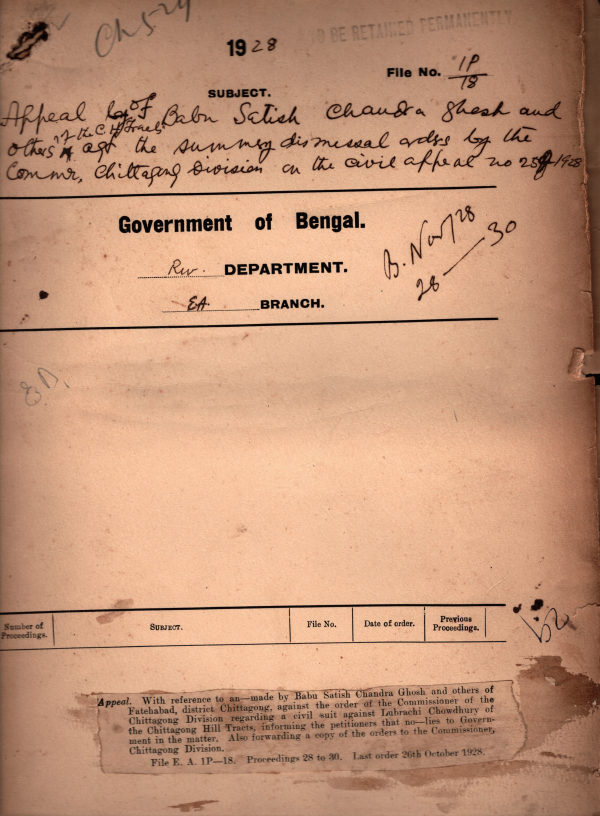 Ch 524
TO BE RETAINED PERMANENTLY
1928
File No. 1P/18
SUBJECT.
Appeal of Babu Satish Chandra Ghosh and
others of the C. H. Tracts agst the summary dismissal order by the
Commr, Chittagong Division on the civil appeal no 25 of 1928
Government of Bengal.
Rev. DEPARTMENT.
EA BRANCH.
B. Nov/28
28 — 30
Number of Proceedings.
SUBJECT.
File No.
Date of order.
Previous Proceedings.
Appeal. With reference to an—made by Babu Satish Chandra Ghosh and others of
Fatehabad, district Chittagong, against the order of the Commissioner of the
Chittagong Division regarding a civil suit against Lubrachi Chowdhury of
the Chittagong Hill Tracts, informing the petitioners that no—lies to Govern-
ment in the matter. Also forwarding a copy of the orders to the Commissioner,
Chittagong Division.
File E. A. 1P—18. Proceedings 28 to 30. Last order 26th October 1928.